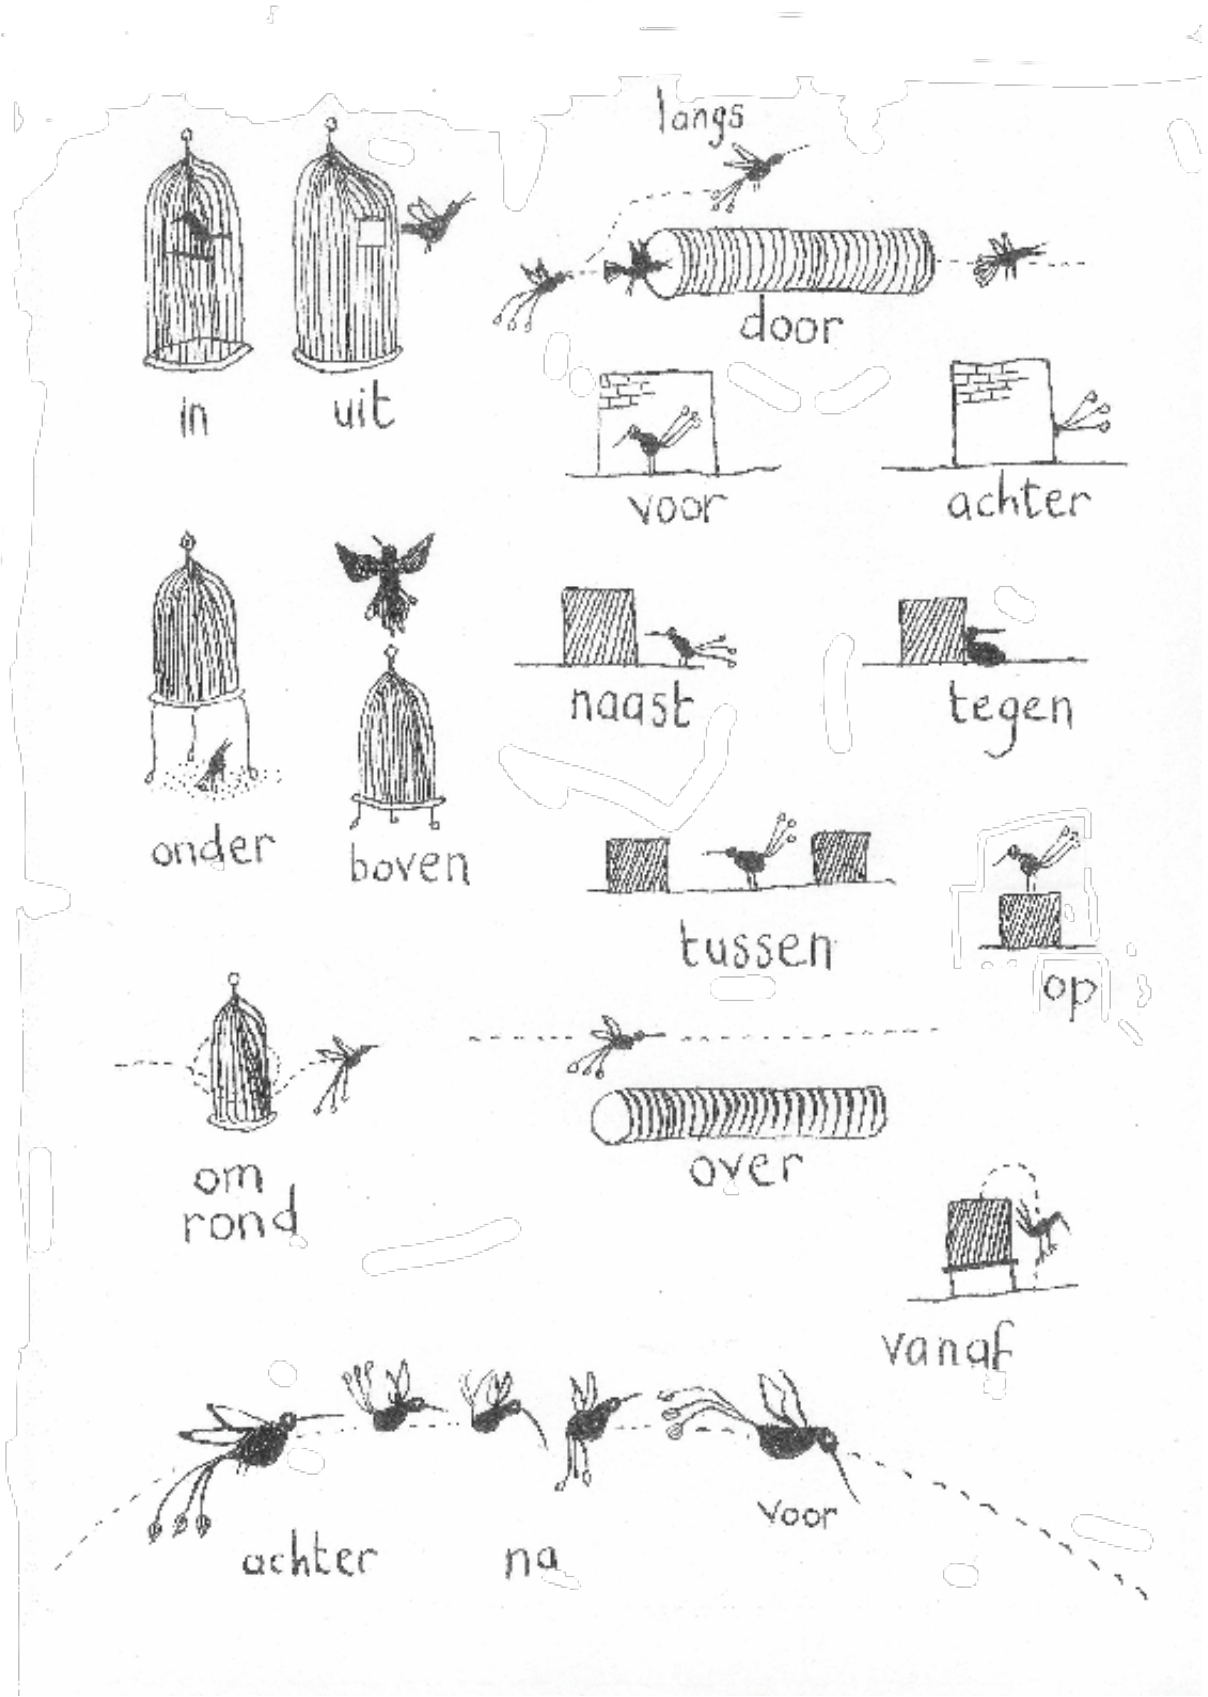 langs
door
in
uit
voor
achter
naast
tegen
onder
boven
tussen
op
om
rond
over
vanaf
achter
na
voor